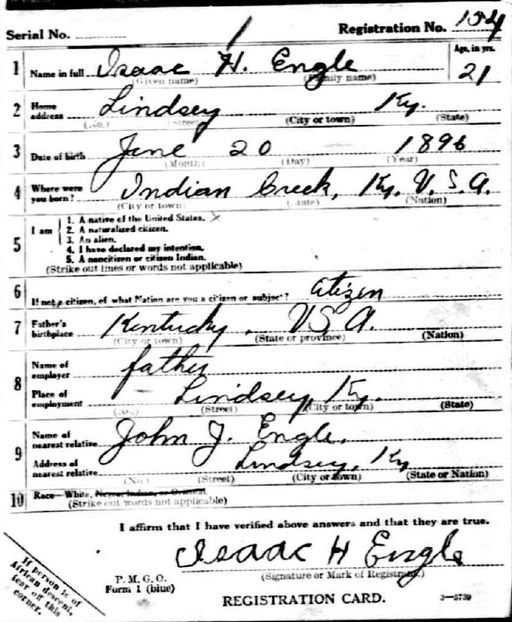 Serial No. 1 Registration No. 154
1 Name in full Isaac H. Engle Age, in yrs. 21
(Given name) (Family name)
2 Home address Lindsey Ky.
(No.) (Street) (City or town) (State)
3 Date of birth June 20 1896
(Month) (Day) (Year)
4 Where were you born? Indian Creek, Ky. U. S. A.
(City or town) (State) (Nation)
5 I am
1. A native of the United States. X
2. A naturalized citizen.
3. An alien.
4. I have declared my intention.
5. A noncitizen or citizen Indian.
(Strike out lines or words not applicable)
6 If not a citizen, of what Nation are you a citizen or subject? Citizen
7 Father's birthplace Kentucky, USA.
(City or town) (State or province) (Nation)
8 Name of employer father
Place of employment Lindsey, Ky.
(No.) (Street) (City or town) (State)
9 Name of nearest relative John J. Engle,
Address of nearest relative Lindsey, Ky
(No.) (Street) (City or town) (State or Nation)
10 Race—White, Negro, Indian, or Oriental.
(Strike out words not applicable)
I affirm that I have verified above answers and that they are true.
Isaac H Engle
(Signature or Mark of Registrant.)
P. M. G. O.
Form 1 (blue)
REGISTRATION CARD. 3—5739
If person is of
African descent,
tear off this
corner.